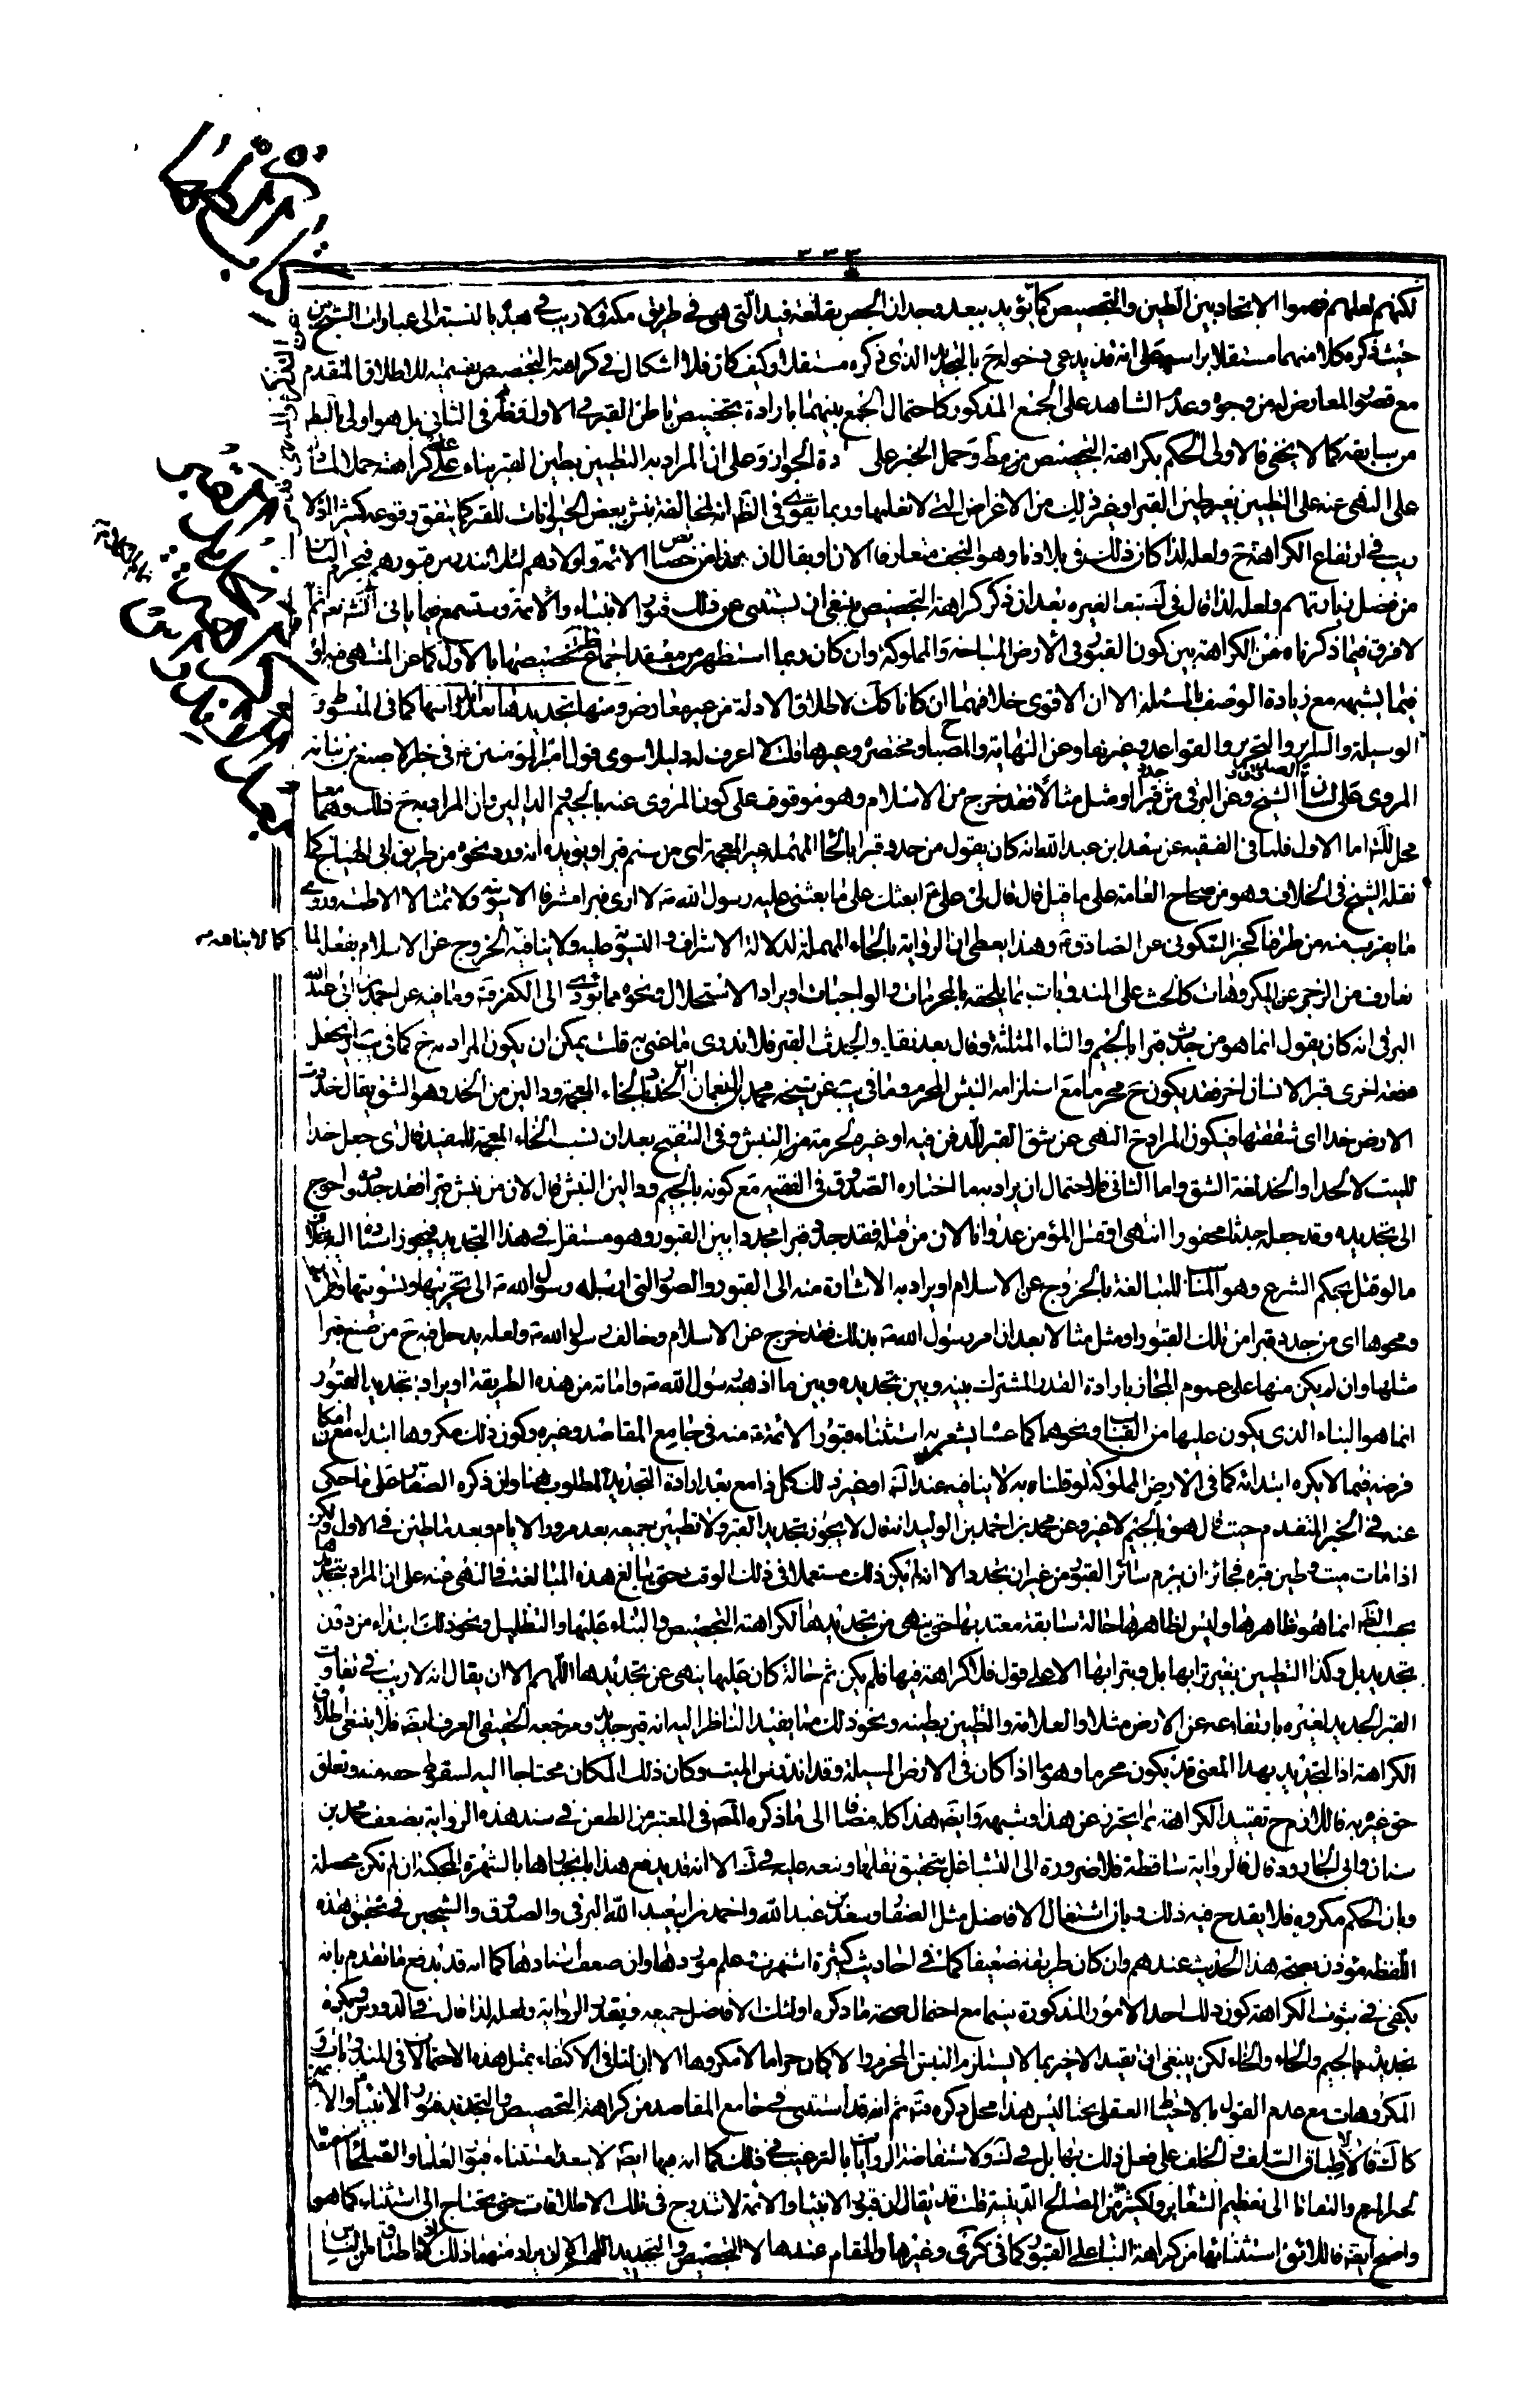 كتاب الطهارة
٣٣٣
لكنهم لعلهم فهموا الاتحاد بين التطيين والتجصيص كما يؤيده بعد وجدان الجص بقلعة فيد التي هي في طريق مكة ولا ريب في هذا بالنسبة الى عبارات الشيخ
حيث ذكره كلا منهما مستقلا براسه على انه قد يدعى دخوله ح بالتجديد الذي ذكره مستقلا وكيف كان فلا اشكال في كراهة التجصيص بقسميه للاطلاق المتقدم
مع قصور المعارض له من وجوه وعدم الشاهد على الجمع المذكور كاحتمال الجمع بينهما بارادة تجصيص باطن القبر في الاول وظاهره في الثاني بل هو اولى بالبط
من سابقه كما لا يخفى فالاولى الحكم بكراهة التجصيص مط وحمل الخبر على ارادة الجواز وعلى ان المراد به التطيين بطين القبر بناء على عدم كراهته حملا
على النهي عنه على التطيين بغير طين القبر او غير ذلك من الاغراض التي لا نعلمها وربما يقوى في الظم انه لمخالفة نبش بعض الحيوانات للقبر كما يتفق وقوعه كثيرا فلا
ريب في ارتفاع الكراهة ح ولعله لذا كان ذلك في بلادنا وهو النجف متعارفا الان او يقال ان هذا من خصائص الائمة واولادهم لئلا تندرس قبورهم فيحرم الناس
من فضل زيارتهم ولعله لذا قال في ك تبعا لغيره بعد ان ذكر كراهة التجصيص ينبغي ان يستثنى عن ذلك قبور الانبياء والائمة وستسمع فيما ياتي انش نعم ثم
لا فرق فيما ذكرناه من الكراهة بين كون القبور في الارض المباحة والمملوكة وان كان ربما استظهر من معقد اجماع تخصيصها بالاول كما عن المنتهى فيه او
فيما يشبهه مع زيادة الوصف بالمسبلة الا ان الاقوى خلافهما ان كانا كك لاطلاق الادلة من غير معارض ومنها تجديدها بعد اندراسها كما في المبسوط و
الوسيلة والسرائر والتحرير والقواعد وغيرها وعن النهاية والمصباح ومختصره وغيرها قلت لا اعرف له دليلا سوى قول امير المؤمنين ع في خبر الاصبغ بن نباتة
المروي على لسان الشيخ وعن البرقي من جدد قبرا او مثل مثالا فقد خرج من الاسلام وهو موقوف على كون المروي عنه بالجيم والدالين وان المراد به ح ذلك وهما معا
محل للنظر اما الاول فلما في الفقيه عن سعد ابن عبد الله انه كان يقول من حدد قبرا بالحاء المهملة غير المعجمة اي من سنم قبرا ويؤيده انه ورد نحوه من طريق ابي الهياج كما
نقله الشيخ في الخلاف وهو من صحاح العامة على ما قيل قال قال لي علي ع ابعثك على ما بعثني عليه رسول الله ص لا ارى قبرا مشرفا الا سويته ولا تمثالا الا طمسته وروي
ما يقرب منه من طرقنا كخبر السكوني عن الصادق ع وهذا يعطي ان الرواية بالحاء المهملة لدلالة الاشراف والتسوية عليه ولا ينافيه الخروج عن الاسلام بفعله لما
تعارف من الزجر عن المكروهات كالحث على المندوبات بما يلحقه بالمحرمات والواجبات او يراد الاستحلال ونحوه مما يؤدي الى الكفر وفيه ما فيه عن احمد بن ابي عبد الله
البرقي انه كان يقول انما هو من جدث قبرا بالجيم والثاء المثلثة وقال بعد نقله والجدث القبر فلا ندري ما عنى به قلت يمكن ان يكون المراد به ح كما في يب ان يجعل
دفعة اخرى قبرا لانسان اخر فقد يكون ح محرما مع استلزامه النبش المحرم وما في يب عن شيخه محمد بن النعمان ان الخدد بالخاء المعجمة ودالين من الخد وهو الشق يقال خددت
الارض خدا اي شققتها فيكون المراد ح النهي عن شق القبر للدفن فيه او غيره لحرمة النبش وفي التنقيح بعد ان نسب الخاء المعجمة للمفيد قال اي جعل خدا
للميت لا لحدا والخد لغة الشق واما الثاني فلاحتمال ان يراد به ما اختاره الصدوق في الفقيه مع كونه بالجيم ودالين النبش قال لان من نبش قبرا فقد جدده واحوج
الى تجديده وقد جعله جدثا محفورا انتهى او قتل المؤمن عدوانا لان من قتله فقد جدد قبرا مجددا بين القبور وهو مستقل في هذا التجديد فيجوز اسناده اليه بخلاف
ما لو قتل بحكم الشرع وهو المناسب للمبالغة بالخروج عن الاسلام او يراد به الاشارة منه الى القبور والصور التي ارسله رسول الله ص الى تخريبها وتسويتها
ومحوها اي من جدد قبرا من تلك القبور او مثل مثالا بعد ان امر رسول الله ص بذلك فقد خرج عن الاسلام وخالف رسول الله ص ولعله يدخل فيه ح من صنع قبرا
مثلها وان لم يكن منها على عموم المجاز بارادة القدر المشترك بينه وبين تجديده وبين ما اذهبه رسول الله ص واماته من هذه الطريقة او يراد بتجديد القبور
انما هو البناء الذي يكون عليها من القباب ونحوهما كما عساه يشعر به استثناء قبور الائمة ع منه في جامع المقاصد وغيره وكون ذلك مكروها ابتداء مع امكان
فرضه فيما لا يكره ابتدائه كما في الارض المملوكة لو قلنا به لا ينافيه عند التامل او غير ذلك كل ذا مع بعد ارادة التجديد المطلوب هنا وان ذكره الصفار على ما حكي
عنه في الخبر المتقدم حيث قال هو بالجيم لا غير وعن محمد بن احمد بن الوليد انه قال لا يجوز تجديد القبر ولا تطيين جميعه بعد مرور الايام وبعد ما طين في الاول ولكن
اذا مات ميت وطين قبره فجائز ان يرم سائر القبور من غير ان يجدد الا انه لم يكن ذلك مستعملا في ذلك الوقت حتى يبالغ هذه المبالغة في النهي عنه على ان المراد بتجديدها
بحسب الظ انما هو ظاهرها وليس لظاهرها حالة سابقة معتد بها حتى ينهى من تجديدها لكراهة التجصيص والبناء عليها والتظليل ونحو ذلك ابتداء من دون
تجديد بل وكذا التطيين بغير ترابها بل وبترابها الا على قول فلا كراهة فيها فلم يكن ثم حالة كان عليها ينهى عن تجديدها اللهم الا ان يقال انه لا ريب في تفاوت
القبر الجديد لغيره بارتفاعه عن الارض مثلا والعلامة والتطيين بطينه ونحو ذلك مما يفيد الناظر اليه انه قبر جديد ومرجعه الحقيقي العرف ايض فلا ينبغي اطلاق
الكراهة اذ التجديد بهذا المعنى قد يكون محرما وهو ما اذا كان في الارض المسبلة وقد اندرس الميت وكان ذلك المكان محتاجا اليه لسقوط حقه منه وتعلق
حق غيره به فاللازم ح تقييد الكراهة بما يحترز عن هذا وشبهه وايض هذا كله مضافا الى ما ذكره المص في المعتبر من الطعن في سند هذه الرواية بضعف محمد بن
سنان وابي الجارود قال فالرواية ساقطة فلا ضرورة الى التشاغل بتحقيق نقلها وتبعه عليه في ك الا انه قد يدفع هذا بانجبارها بالشهرة المحكية ان لم تكن محصلة
وبان الحكم مكروه فلا يقدح فيه ذلك وبان اشتغال الافاضل مثل الصفار وسعد بن عبد الله واحمد بن ابي عبد الله البرقي والصدوق والشيخين في تحقيق هذه
اللفظة مؤذن بصحة هذا الحديث عندهم وان كان طريقه ضعيفا كما في احاديث كثيرة اشتهرت وعلم موردها وان ضعف اسنادها كما انه قد يدفع ما تقدم بانه
يكفي في ثبوت الكراهة كون ذلك احد الامور المذكورة سيما مع احتمال صحة ما ذكره اولئك الافاضل جميعه وتعدد الرواية ولعله لذا قال في الدروس ويكره
تجديده بالجيم والحاء والخاء لكن ينبغي ان يقيد الاخير بما لا يستلزم النبش المحرم والا كان حراما لا مكروها الا ان لنا في الاكتفاء بمثل هذه الاحتمالات في المندوبات و
المكروهات مع عدم القول بالاحتياط العقلي بحثا ليس هذا محل ذكره ثم انه قد استثنى في جامع المقاصد من كراهة التجصيص والتجديد قبور الانبياء والائمة
كانه لاطباق السلف والخلف على فعل ذلك بها بل في ك ولاستفاضة الروايات بالترغيب في ذلك كما ان فيها ايض لا يبعد استثناء قبور العلماء والصلحاء
لحا الجميع والتفاتا الى تعظيم الشعاير ولكثير من المصالح الدينية قلت قد يقال ان قبور الانبياء والائمة لا تندرج في تلك الاطلاقات حتى يحتاج الى استثناء كما هو
واضح ايض فاللائق استثنائها من كراهة البناء على القبور كما في كرى وغيرها والمقام عندها لا التجصيص والتجديد اللهم الا ان يراد منهما ذلك
كما لا ينافيه